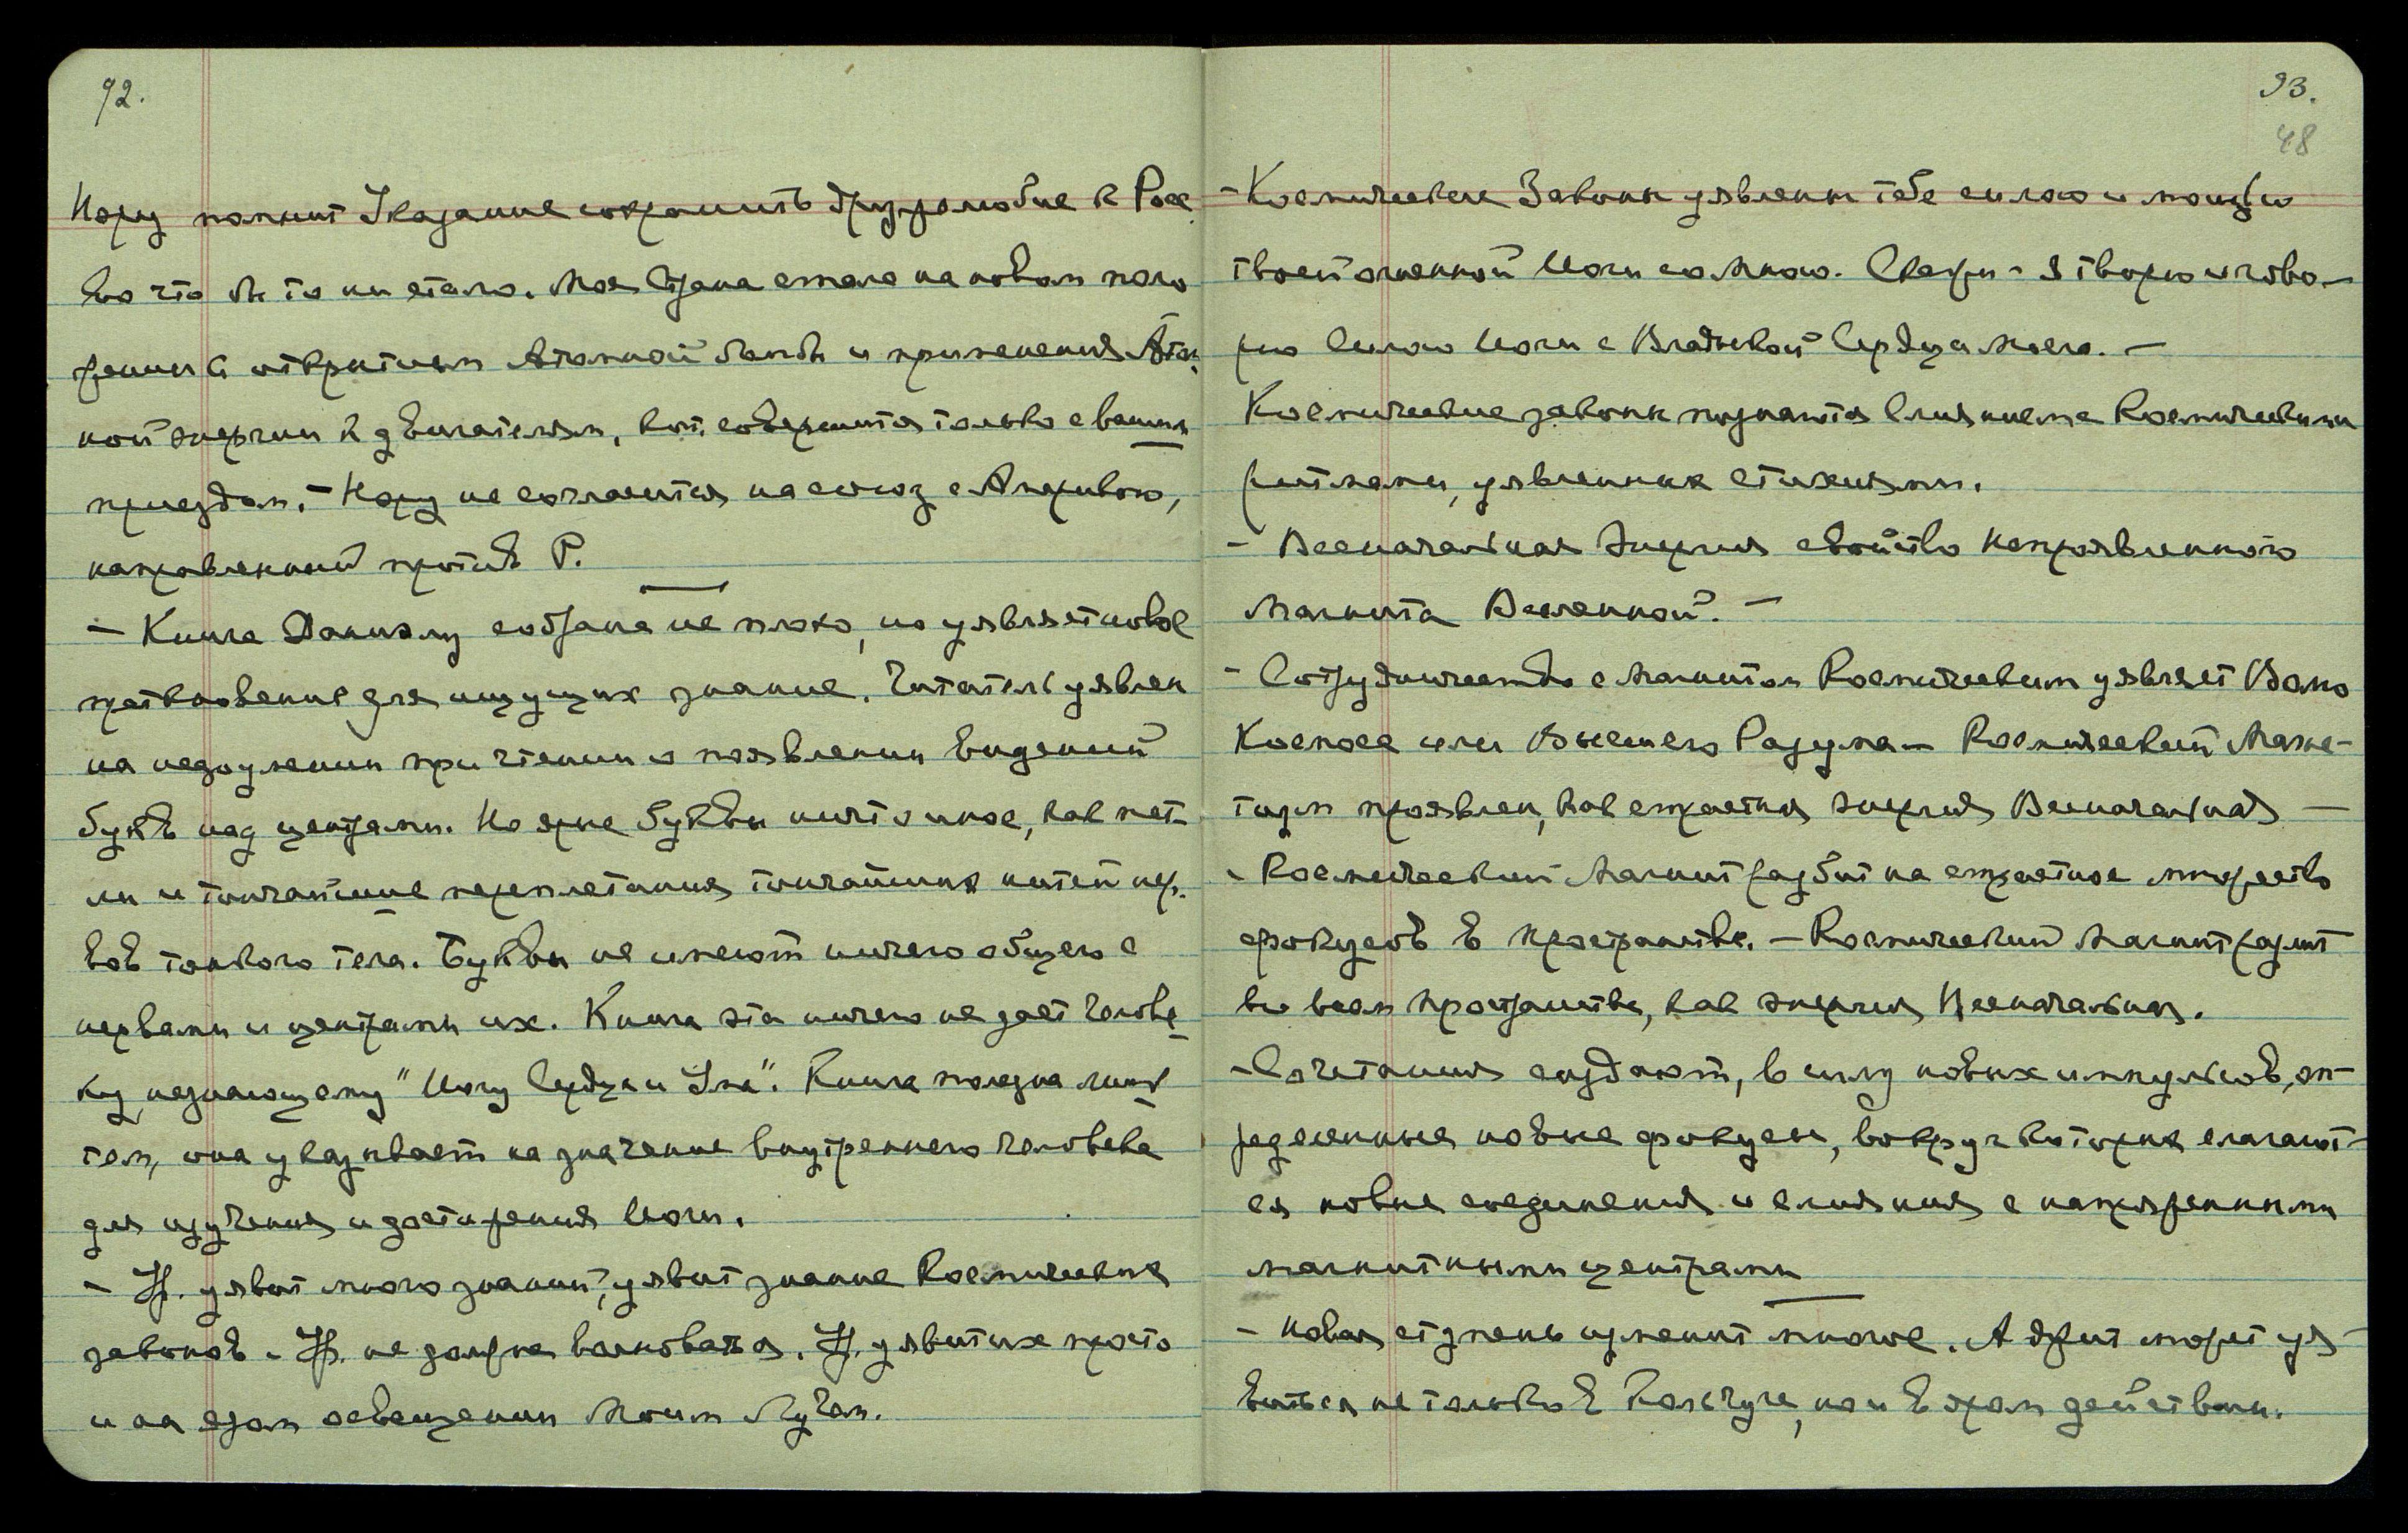 92.
Неру помнит Указание сохранить дружелюбие к Рос.
во что бы то ни стало. Моя Страна стала на новом поло
жении с открытием Атомной бомбы и применения Атом.
ной энергии к двигателям, кот. совершится только с вашим
приездом. – Неру не согласится на союз с Америкою,
направленный против Р.
– Книга Даниэлу собрана не плохо, но уявляет новое
преткновение для ищущих знание. Читатель уявлен
на недоумении при чтении о появлении видений
букв над центрами. Но эти буквы ничто иное, как пет-
ли и тончайшие переплетания тончайших нитей нер.
вов тонкого тела. Буквы не имеют ничего общего с
нервами и центрами их. Книга эта ничего не дает челове
ку, незнающему "Йогу Сердца и Ума". Книга полезна лишь
тем, она указывает на значение внутреннего человека
для изучения и достижения Йоги.
– Ур. уявит много знаний, уявит знание Космических
законов. Ур. не должна волноваться. Ур. уявит их просто
и на ярком освещении Моим Лучом.
93.
48
– Космические Законы уявлены тебе силою и мощью
твоей огненной Йоги со Мною. Скажи – Я творю и гово-
рю Силою Йоги с Владыкой Сердца Моего. –
Космические законы познаются слиянием с Космическими
ритмами, уявленных стихиями.
– Всеначальная Энергия свойство напряженного
Магнита Вселенной. –
– Сотрудничество с Магнитом Космическим уявляет Волю
Космоса или Высшего Разума – Космический Магне-
тизм проявлен, как страстная энергия Всеначальная –
– Космический Магнит разбит на страстное множество
фокусов в пространстве. – Космический Магнит разлит
во всем Пространстве, как энергия Всеначальная.
– Сочетания создают, в силу новых импульсов, оп-
ределенные новые фокусы, вокруг которых слагают-
ся новые соединения и слияния с напряженными
магнитными центрами
– Новая ступень изменит многое. А друг может уя-
виться не только в Кольчуге, но и в ярком действии.